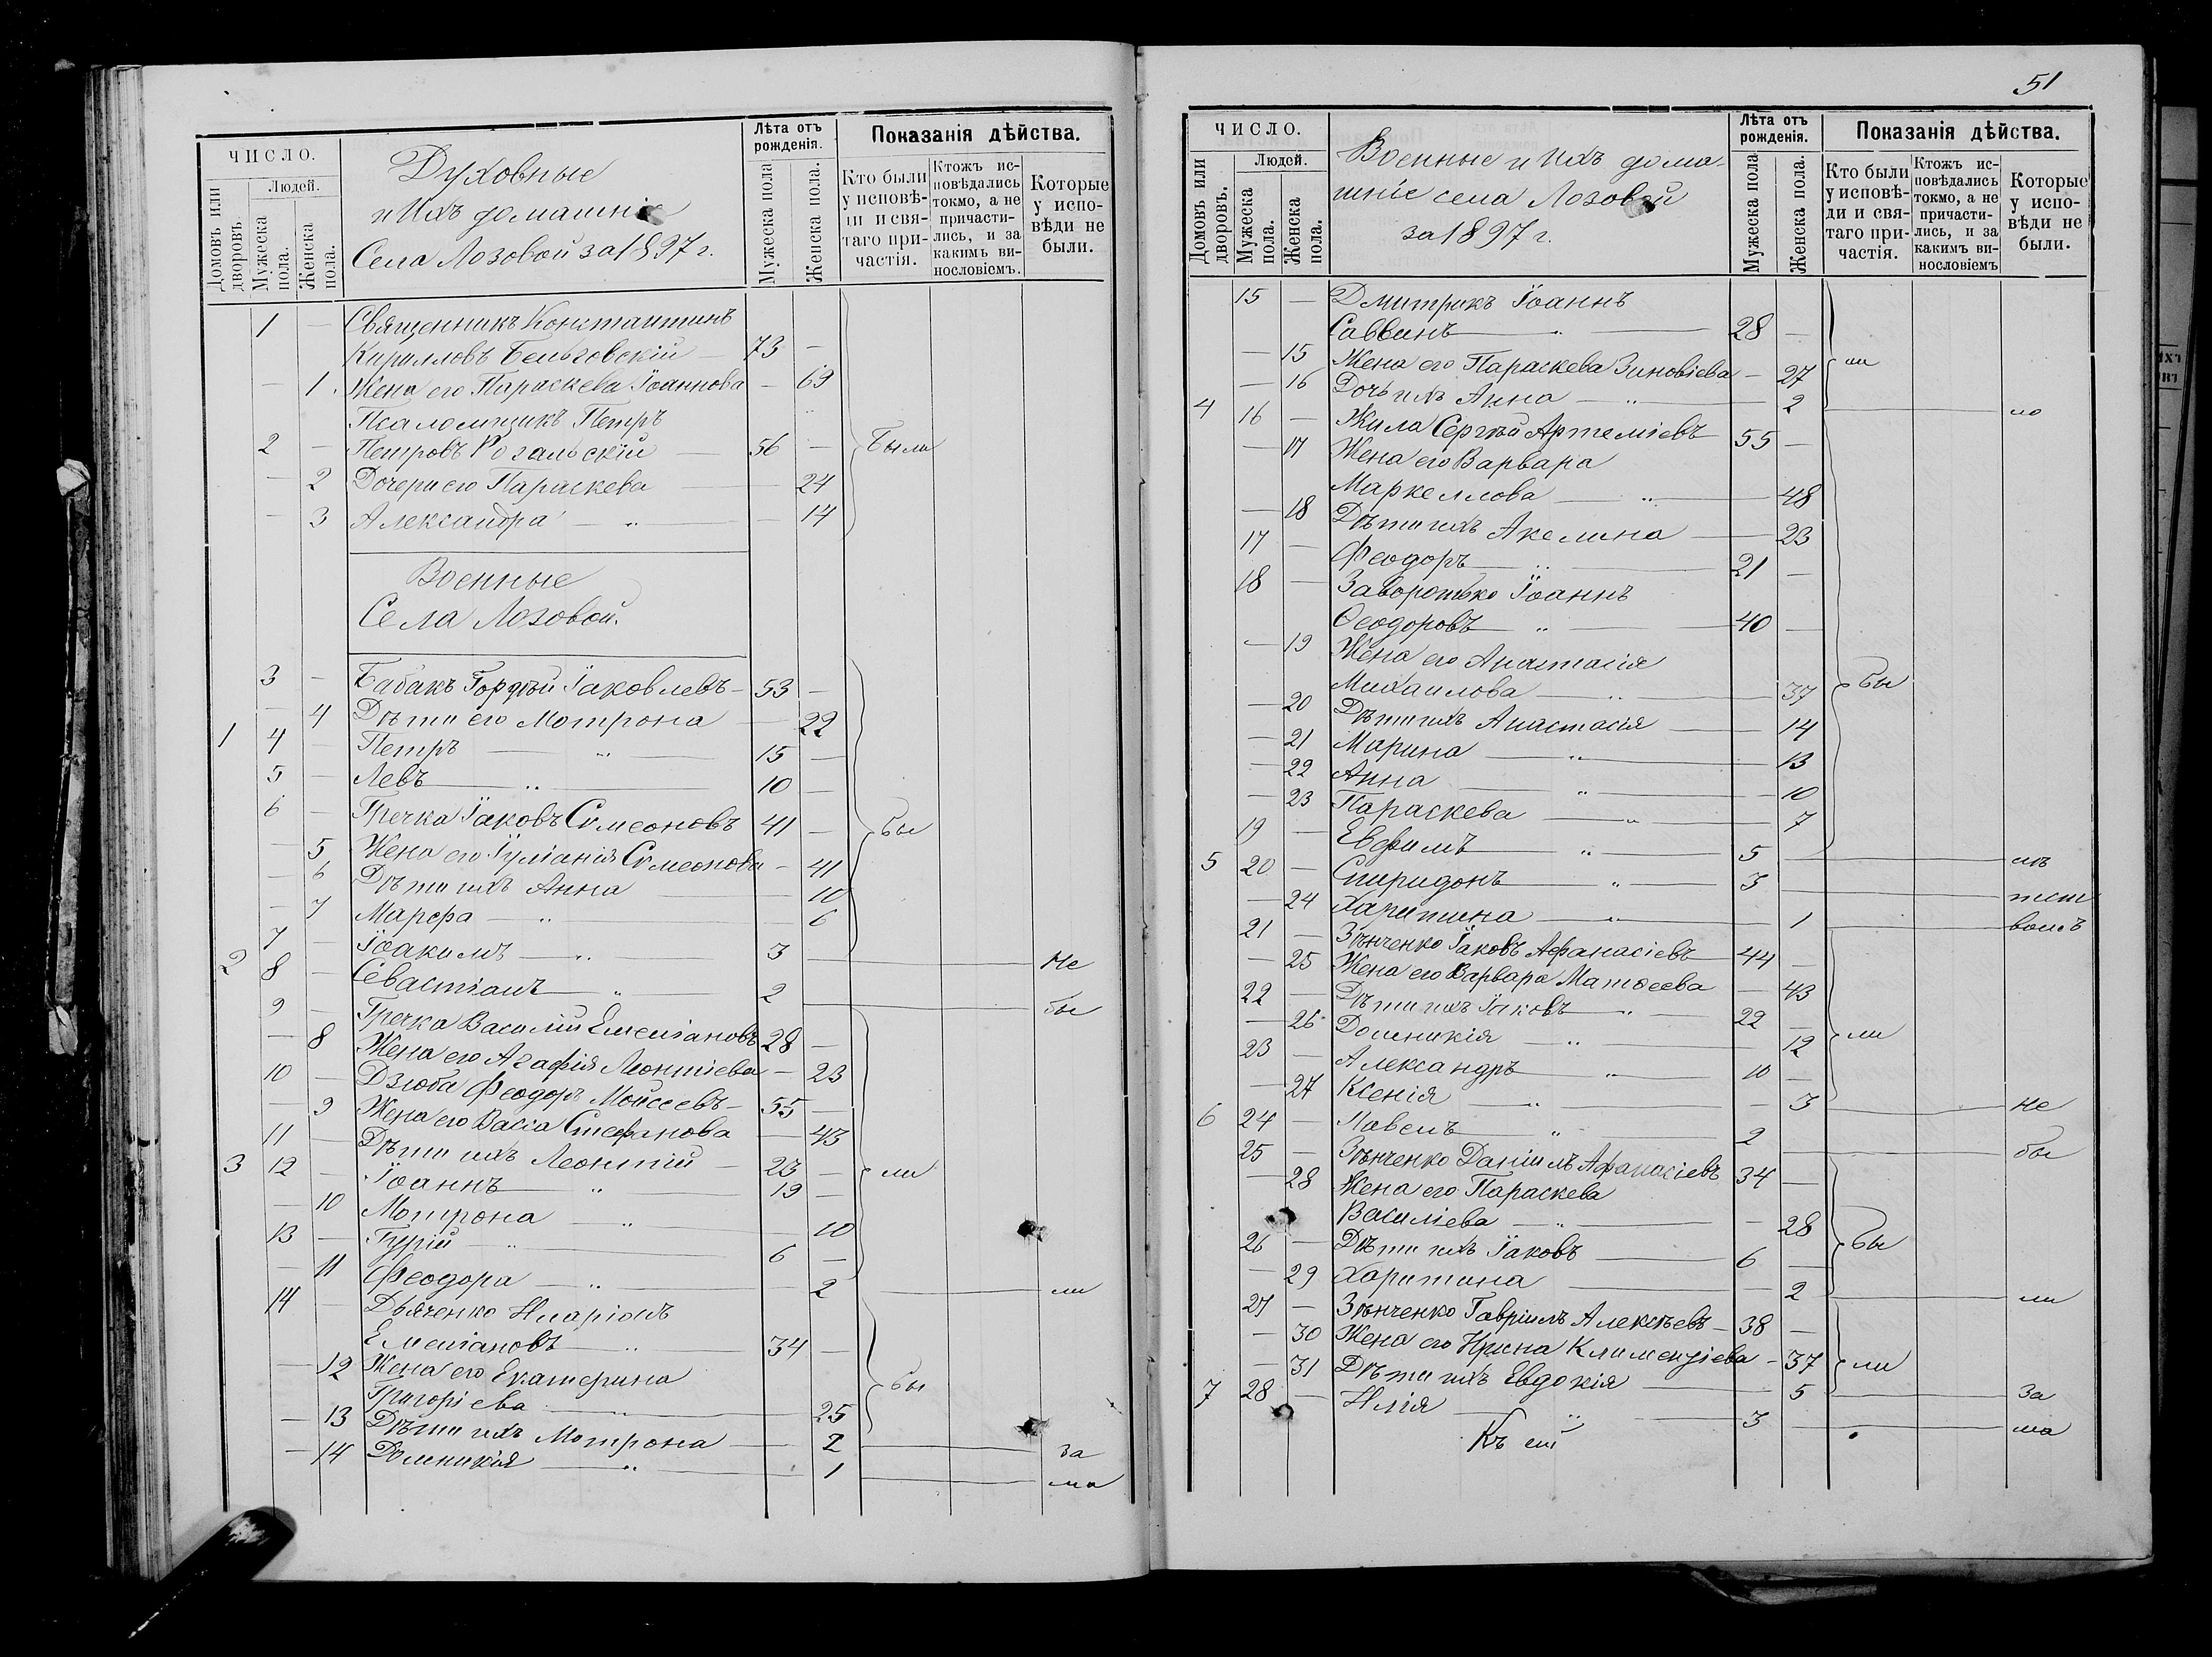 51
ЧИСЛО.
Домовъ или дворовъ.
Людей.
Мужеска пола.
Женска пола.
Духовные
и Ихъ домашніе
Села Лозовой за 1897 г.
Лѣта отъ рожденія.
Мужеска пола
Женска пола.
Показанія дѣйства.
Кто были у исповѣди и святаго причастія.
Ктожъ исповѣдались токмо, а не причастились, и за какимъ винословіемъ.
Которые у исповѣди не были.
1 — Священникъ Константинъ
Кирилловъ Бельговскій — 73 —
— 1 Жена его Параскева Іоаннова — 69
Псаломщикъ Петръ
2 — Петровъ Рогальскій — 56 — Были
— 2 Дочери его Параскева — 24
— 3 Александра — „ — — 14
Военные
Села Лозовой.
3 — Бабакъ Гордѣй Іаковлевъ — 53 —
— 4 Дѣти его Мотрона — 22
1 4 — Петръ — „ — 15 —
5 — Левъ — „ — 10 —
6 — Гречка Іаковъ Сѵмеоновъ 41 — бы
— 5 Жена его Іуліанія Сѵмеонова — 41
— 6 Дѣти ихъ Анна — 10
— 7 Марфа — „ — 6
7 — Іоакимъ — „ 3 — Не
2 8 — Севастіанъ — „ 2 — бы
9 — Гречка Василій Емеліановъ 28 —
— 8 Жена его Агафія Леонтіева — 23
10 — Дзюба Феодоръ Мойсеевъ — 55 —
— 9 Жена его Васса Стефанова — 43
11 — Дѣти ихъ Леонтій — 23 — ли
3 12 — Іоаннъ — „ 19 —
— 10 Мотрона — „ — 10
13 — Гурій — „ — 6 —
— 11 Феодора — „ — 2 — ли
14 — Дьяченко Иларіонъ
Емеліановъ — „ — 34 —
— 12 Жена его Екатерина бы
Григоріева — „ — 25
— 13 Дѣти ихъ Мотрона — 2 — за
— 14 Домникія — „ — 1 — ма
ЧИСЛО.
Домовъ или дворовъ.
Людей.
Мужеска пола.
Женска пола.
Военные и Ихъ дома-
шніе села Лозовой
за 1897 г.
Лѣта отъ рожденія.
Мужеска пола
Женска пола.
Показанія дѣйства.
Кто были у исповѣди и святаго причастія.
Ктожъ исповѣдались токмо, а не причастились, и за какимъ винословіемъ
Которые у исповѣди не были.
15 — Дмитрикъ Іоаннъ
Саввинъ — „ — 28 —
— 15 Жена его Параскева Зиновіева — 27 ли
— 16 Дочь ихъ Анна — „ — 2 — ло
4 16 — Жила Сергѣй Артеміевъ 55 —
— 17 Жена его Варвара
Маркеллова — „ — 48
— 18 Дѣти ихъ Акелина — 23
17 — Феодоръ — „ — 21 —
18 — Заворотько Іоаннъ
Ѳеодоровъ — „ — 40 —
— 19 Жена его Анастасія
Михаилова — „ — 37 бы
— 20 Дѣти ихъ Анастасія — 14
— 21 Марина — „ — 13
— 22 Анна — „ — 10
— 23 Параскева — „ — 7
19 — Евфимъ — „ — 5 — лѣ
5 20 — Спиридонъ — „ — 3 — тст
— 24 Харитина — „ — 1 — вомъ
21 — Зѣнченко Іаковъ Афанасіевъ 44 —
— 25 Жена его Варвара Матѳеева — 43
22 — Дѣти ихъ Іаковъ — „ — 22 —
— 26 Домникія — „ — 12 ли
23 — Александръ — „ — 10 —
— 27 Ксенія — „ — 3 — Не
6 24 — Павелъ — „ — 2 — бы
25 — Зѣнченко Даніилъ Афанасіевъ 34 —
— 28 Жена его Параскева
Василіева — „ — 28 бы
26 — Дѣти ихъ Іаковъ — 6 —
— 29 Харитина — 2 — ли
27 — Зѣнченко Гавріилъ Алексѣевъ — 38 —
— 30 Жена его Ирина Климентіева — 37 ли
— 31 Дѣти ихъ Евдокія — 5 — За
7 28 — Илія — „ — 3 — ма